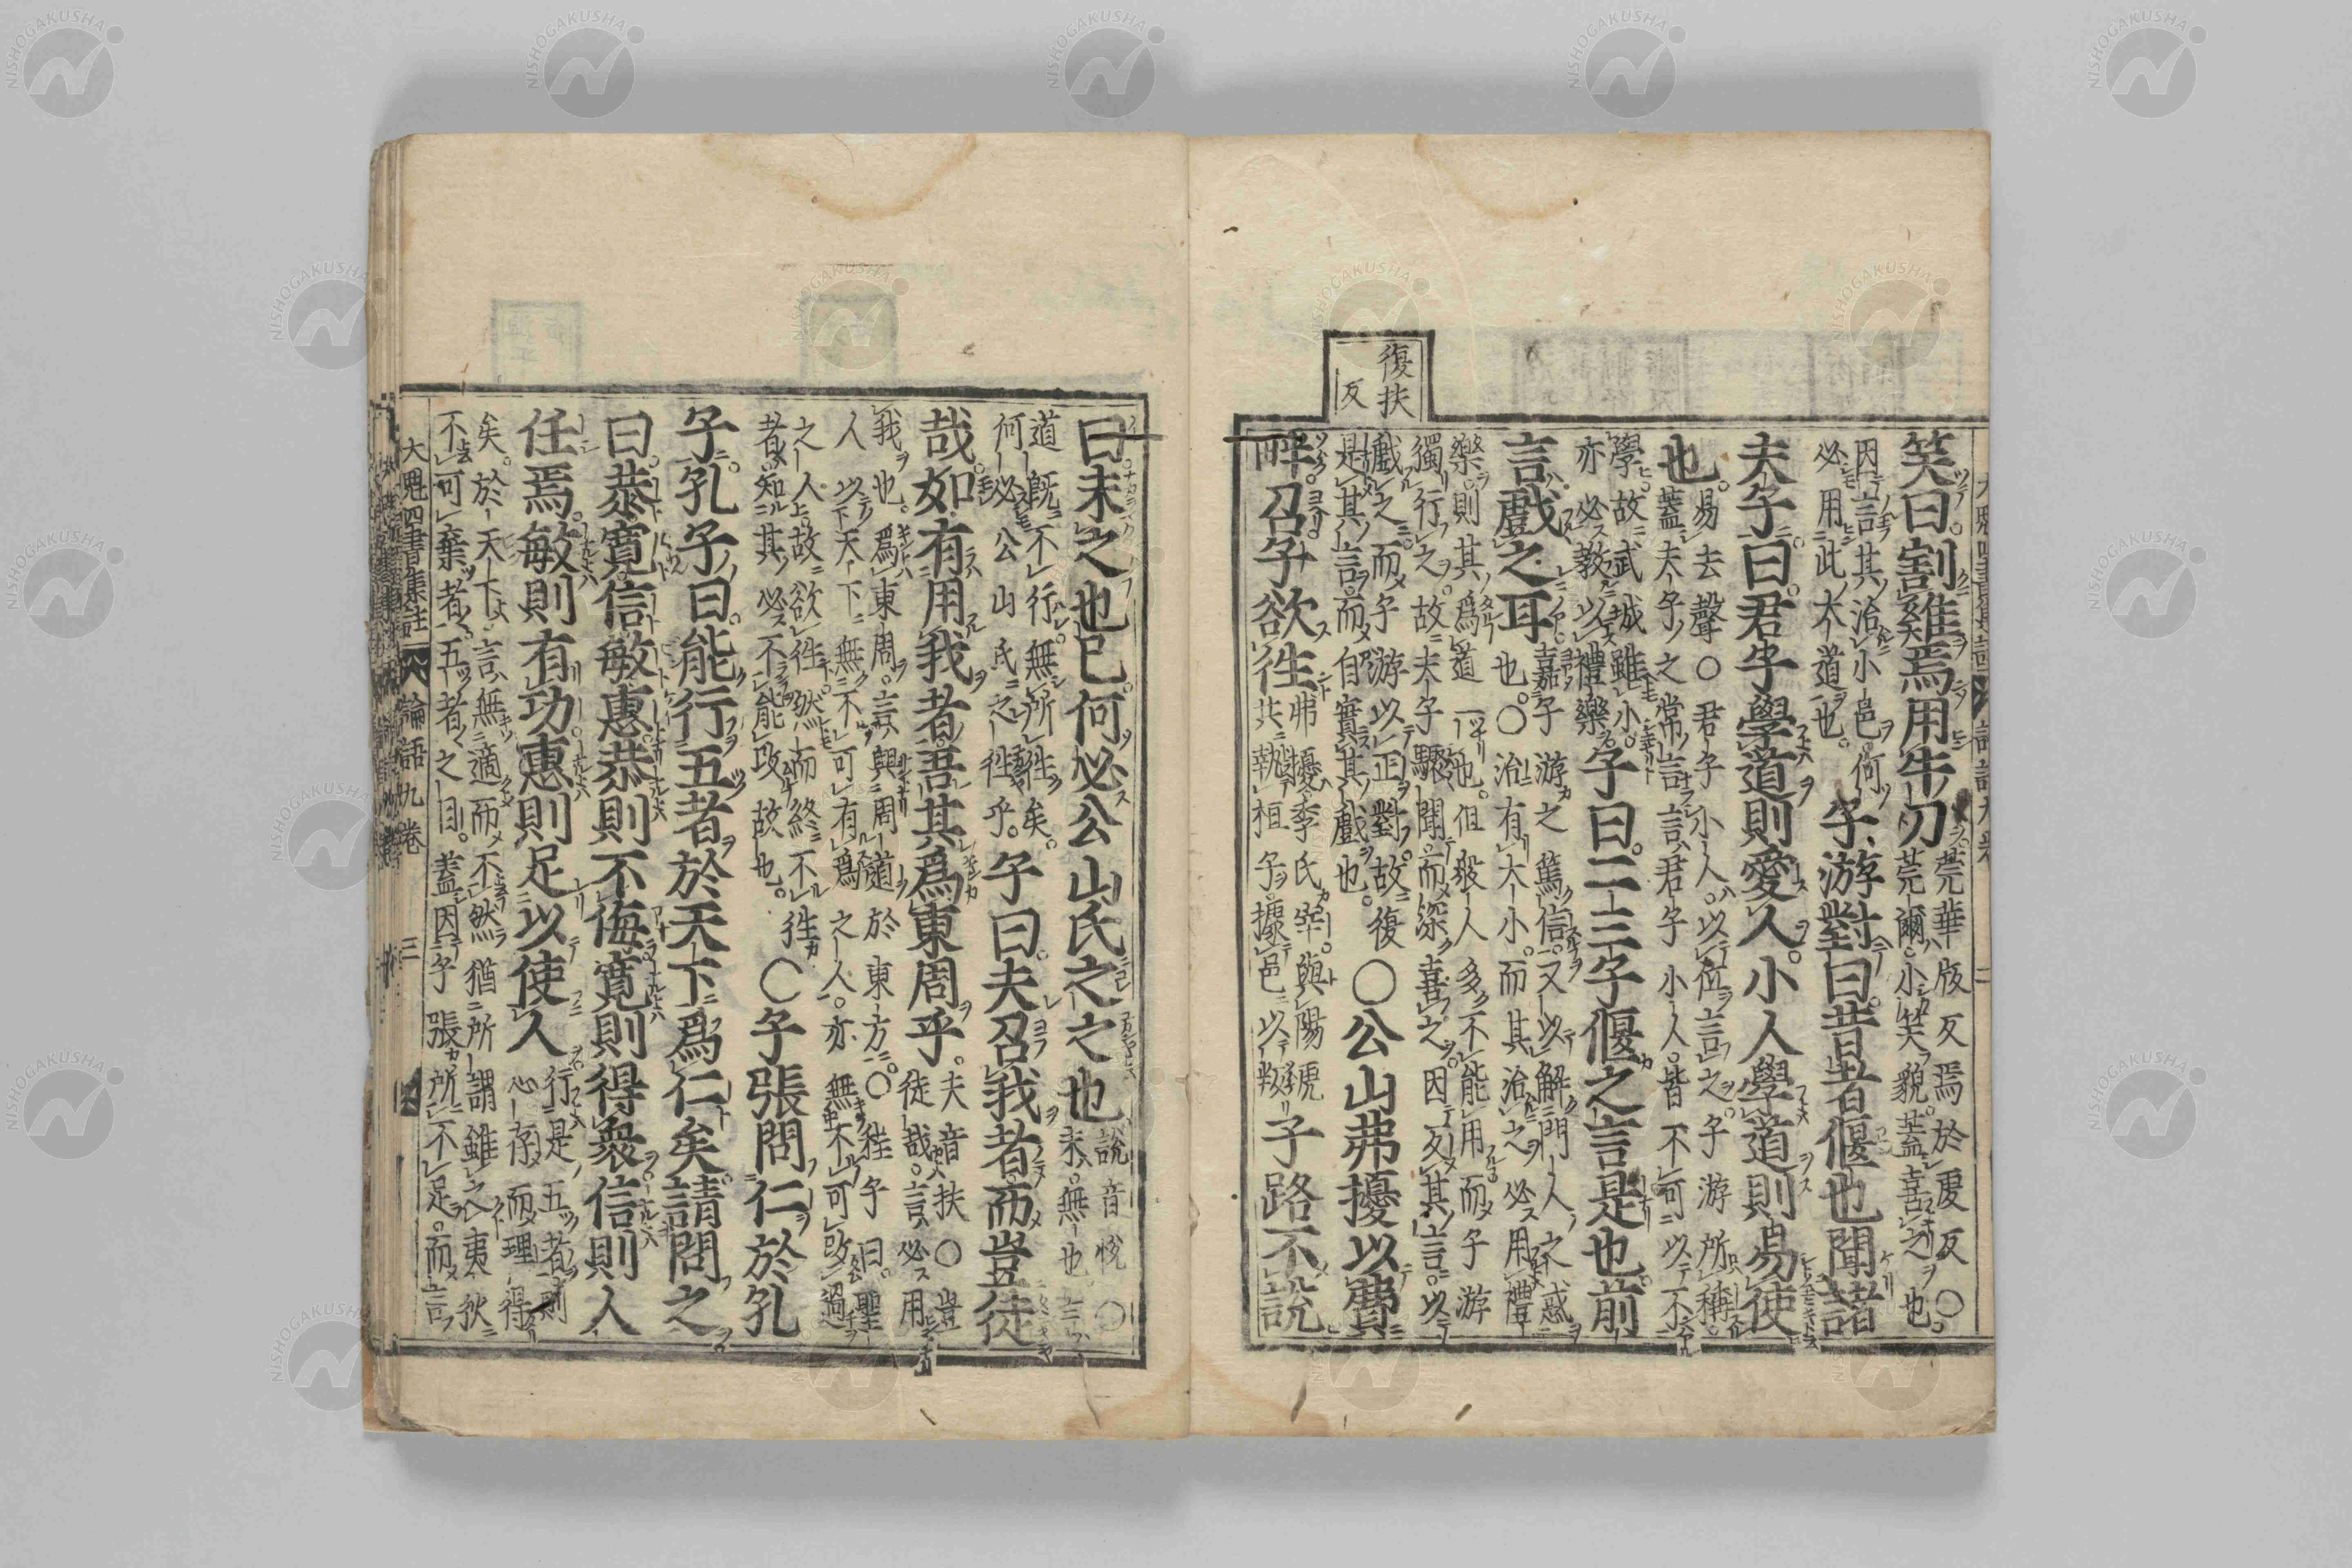 復扶
反
笑曰割雞焉用牛刀 莞華版反焉於虔反○
莞爾小笑貌蓋喜之也
因言其治小邑何
必用此大道也 子游對曰昔者偃也聞諸
夫子曰君子學道則愛人小人學道則易使
也 易去聲○君子小人以位言之子游所稱
蓋夫子之常言言君子小人皆不可以不
學故武城雖小
亦必教以禮樂 子曰二三子偃之言是也前
言戲之耳 嘉子游之篤信又以解門人之惑
也○治有大小而其治之必用禮
樂則其爲道一也但衆人多不能用而子游
獨行之故夫子驟聞而深喜之因反其言以
戲之而子游以正對故復
是其言而自實其戲也 ○公山弗擾以費
畔召子欲往 弗擾季氏宰與陽虎
共執桓子據邑以叛 子路不說
曰末之也已何必公山氏之之也 說音悅○
末無也言
道既不行無所往矣
何必公山氏之往乎 子曰夫召我者而豈徒
哉如有用我者吾其爲東周乎 夫音扶○豈
徒哉言必用
我也爲東周言興周道於東方○程子曰聖
人以天下無不可有爲之人亦無不可改過
之人故欲往然而終不往
者知其必不能改故也 ○子張問仁於孔
子孔子曰能行五者於天下爲仁矣請問之
曰恭寬信敏惠恭則不侮寬則得衆信則人
任焉敏則有功惠則足以使人 行是五者則
心存而理得
矣於天下言無適而不然猶所謂雖之夷狄
不可棄者五者之目蓋因子張所不足而言
大魁四書集註 論語九卷 三
NISHOGAKUSHA